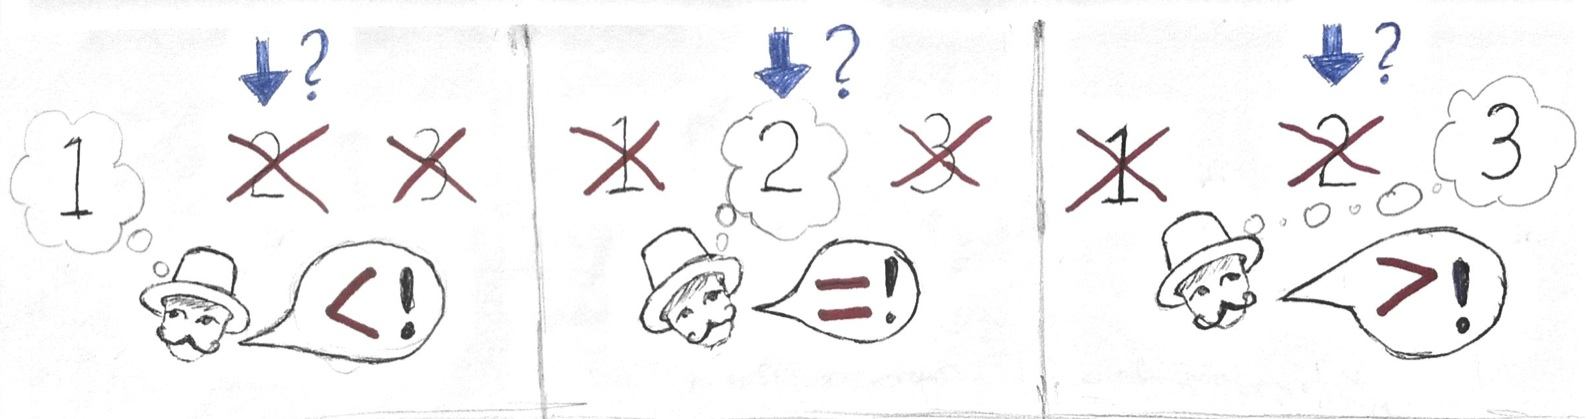 ? ? ?
1 2 3 1 2 3 1 2 3
< ! = ! > !